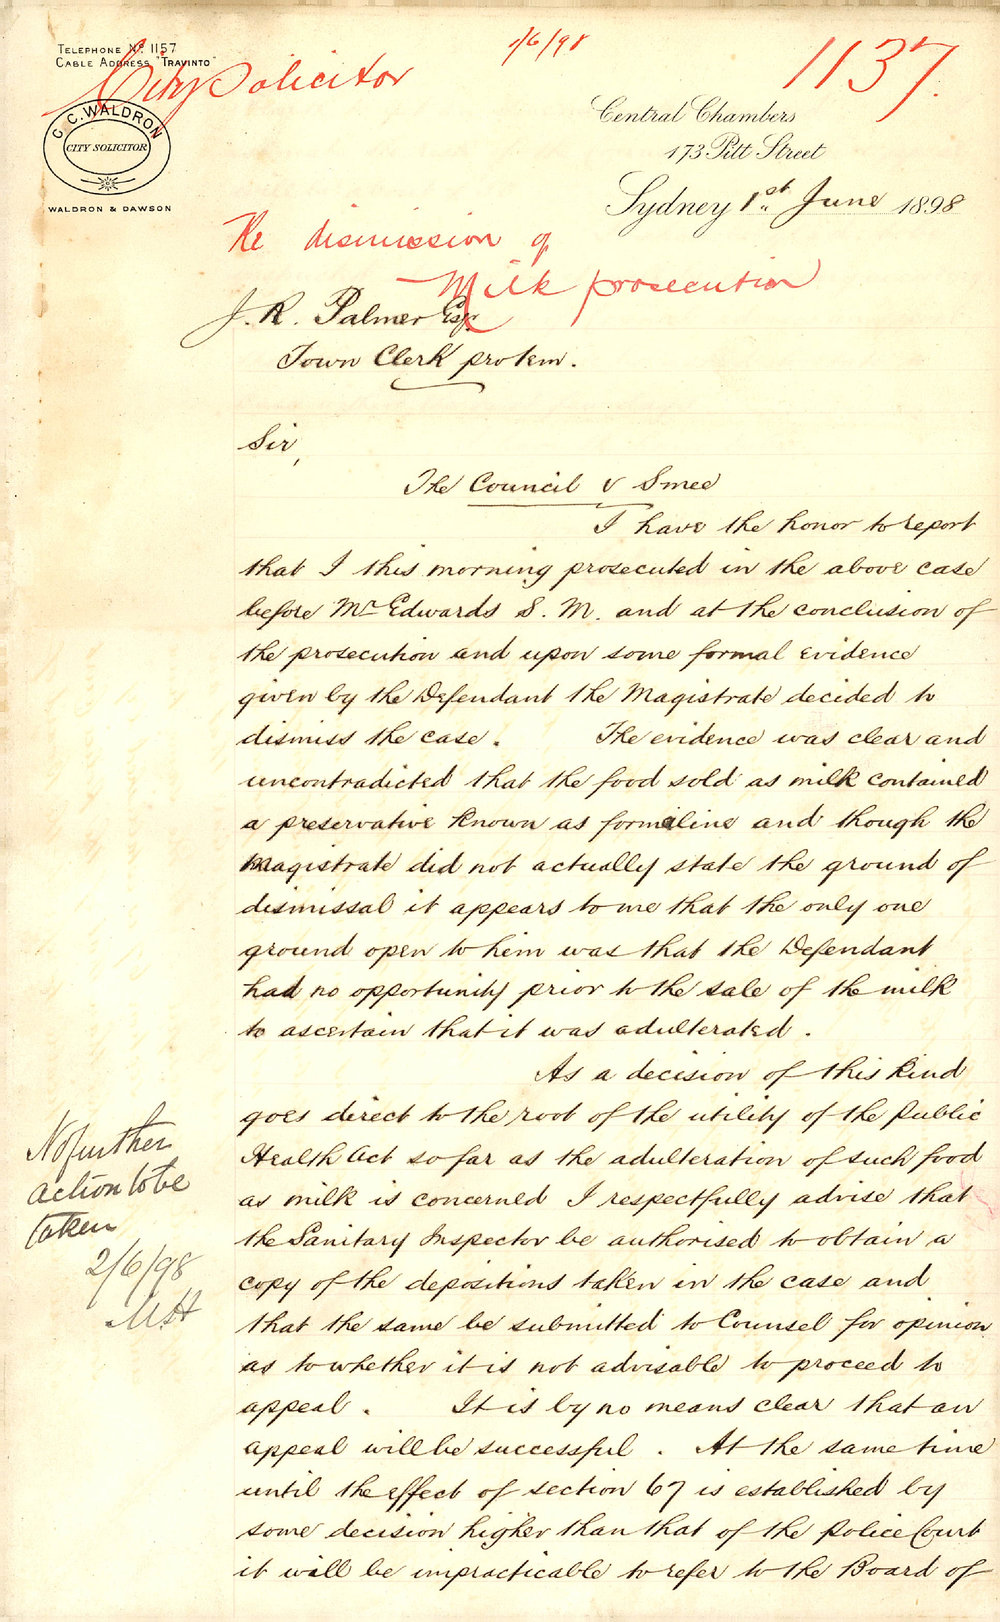 Telephone No. 1157
Cable Address "Travinto"
City Solicitor
1/6/98
1137.
C. C. WALDRON
CITY SOLICITOR
WALDRON & DAWSON
Central Chambers
173 Pitt Street
Sydney 1st June 1898
Re dismission of
Milk prosecution
J. R. Palmer Esq.
Town Clerk pro tem.
Sir,
The Council v Smee
I have the honor to report
that I this morning prosecuted in the above case
before Mr Edwards S. M. and at the conclusion of
the prosecution and upon some formal evidence
given by the Defendant the Magistrate decided to
dismiss the case. The evidence was clear and
uncontradicted that the food sold as milk contained
a preservative known as formaline and though the
Magistrate did not actually state the ground of
dismissal it appears to me that the only one
ground open to him was that the Defendant
had no opportunity prior to the sale of the milk
to ascertain that it was adulterated.
As a decision of this kind
goes direct to the root of the utility of the Public
Health Act so far as the adulteration of such food
as milk is concerned I respectfully advise that
the Sanitary Inspector be authorised to obtain a
copy of the depositions taken in the case and
that the same be submitted to Counsel for opinion
as to whether it is not advisable to proceed to
appeal. It is by no means clear that an
appeal will be successful. At the same time
until the effect of section 67 is established by
some decision higher than that of the Police Court
it will be impracticable to refer to the Board of
No further
action to be
taken
2/6/98